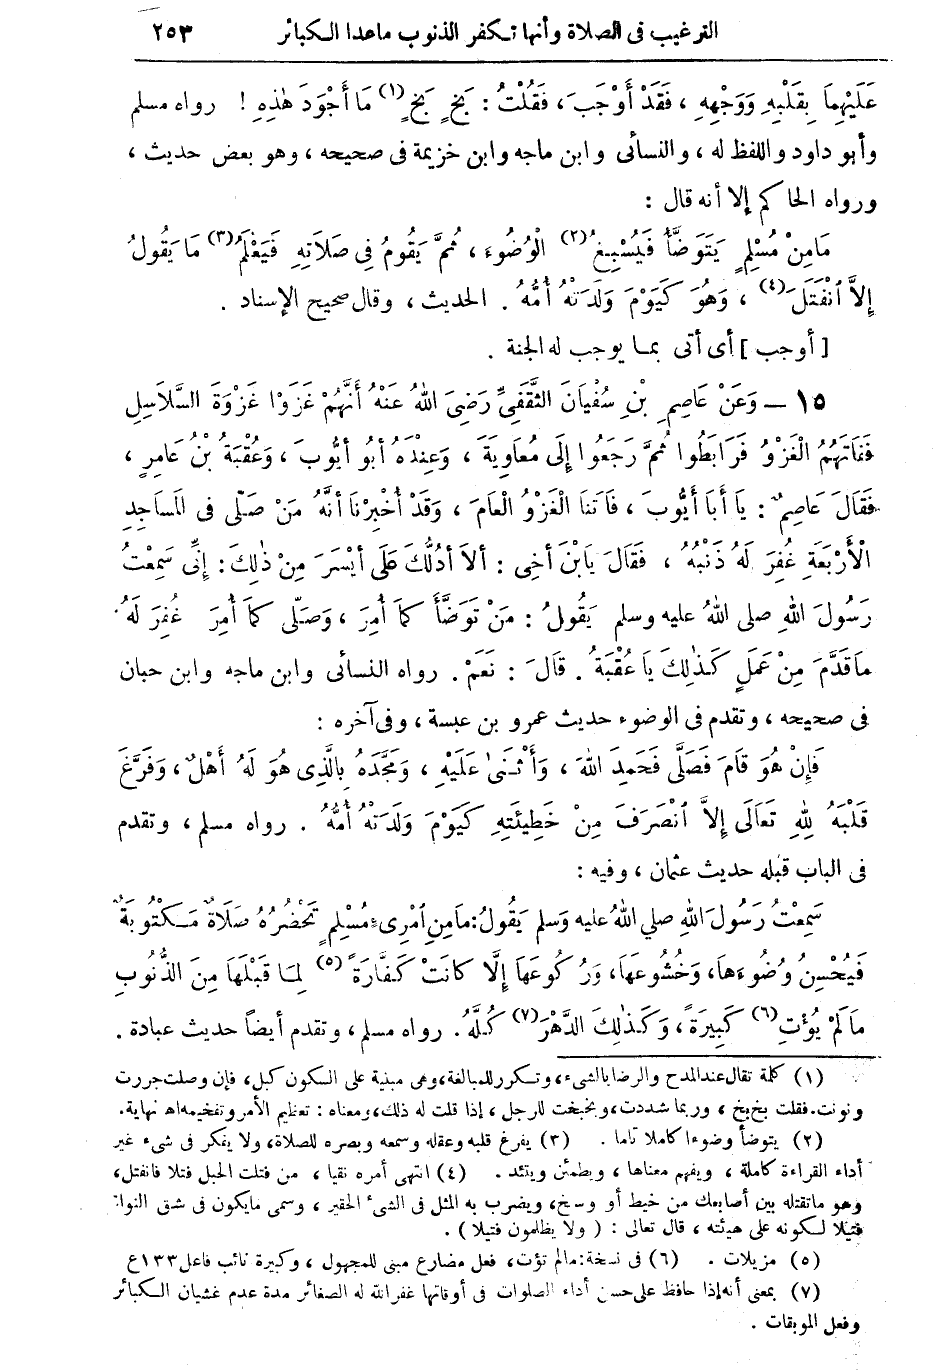 الترغيب فى الصلاة وأنها تكفر الذنوب ماعدا الكبائر ٢٥٣
عَلَيْهِمَا بِقَلْبِهِ وَوَجْهِهِ ، فَقَدْ أَوْجَبَ ، فَقُلْتُ : بَخٍ بَخٍ (١) مَا أَجْوَدَ هٰذِهِ ! رواه مسلم
وأبو داود واللفظ له ، والنسائى وابن ماجه وابن خزيمة فى صحيحه ، وهو بعض حديث ،
ورواه الحاكم إلا أنه قال :
مَامِنْ مُسْلِمٍ يَتَوَضَّأُ فَيُسْبِغُ (٢) الْوُضُوءَ ، ثُمَّ يَقُومُ فِى صَلَاتِهِ فَيَعْلَمُ (٣) مَا يَقُولُ
إِلاَّ ٱنْفَتَلَ (٤) ، وَهُوَ كَيَوْمَ وَلَدَتْهُ أُمُّهُ . الحديث ، وقال صحيح الإسناد .
[ أوجب ] أى أتى بما يوجب له الجنة .
١٥ — وَعَنْ عَاصِمِ بْنِ سُفْيَانَ الثَّقَفِىِّ رَضِىَ اللهُ عَنْهُ أَنَّهُمْ غَزَوْا غَزْوَةَ السَّلَاسِلِ
فَفَاتَهُمُ الْغَزْوُ فَرَابَطُوا ثُمَّ رَجَعُوا إِلَى مُعَاوِيَةَ ، وَعِنْدَهُ أَبُو أَيُّوبَ ، وَعُقْبَةُ بْنُ عَامِرٍ ،
فَقَالَ عَاصِمٌ : يَا أَبَا أَيُّوبَ ، فَاتَنَا الْغَزْوُ الْعَامَ ، وَقَدْ أُخْبِرْنَا أَنَّهُ مَنْ صَلَّى فِى الْمَسَاجِدِ
الْأَرْبَعَةِ غُفِرَ لَهُ ذَنْبُهُ ، فَقَالَ يَابْنَ أَخِى : أَلاَ أَدُلُّكَ عَلَى أَيْسَرَ مِنْ ذٰلِكَ : إِنِّى سَمِعْتُ
رَسُولَ اللهِ صلى اللهُ عليه وسلم يَقُولُ : مَنْ تَوَضَّأَ كَمَا أُمِرَ ، وَصَلَّى كَمَا أُمِرَ غُفِرَ لَهُ
مَاقَدَّمَ مِنْ عَمَلٍ كَذٰلِكَ يَا عُقْبَةُ . قَالَ : نَعَمْ . رواه النسائى وابن ماجه وابن حبان
فى صحيحه ، وتقدم فى الوضوء حديث عمرو بن عبسة ، وفى آخره :
فَإِنْ هُوَ قَامَ فَصَلَّى فَحَمِدَ اللهَ ، وَأَثْنَى عَلَيْهِ ، وَمَجَّدَهُ بِالَّذِى هُوَ لَهُ أَهْلٌ ، وَفَرَّغَ
قَلْبَهُ لِلهِ تَعَالَى إِلاَّ ٱنْصَرَفَ مِنْ خَطِيئَتِهِ كَيَوْمَ وَلَدَتْهُ أُمُّهُ . رواه مسلم ، وتقدم
فى الباب قبله حديث عثمان ، وفيه :
سَمِعْتُ رَسُولَ اللهِ صلي اللهُ عليه وَسلم يَقُولُ : مَامِنِ ٱمْرِىءٍ مُسْلِمٍ تَحْضُرُهُ صَلَاةٌ مَكْتُوبَةٌ
فَيُحْسِنُ وُضُوءَهاَ ، وَخُشُوعَهاَ ، وَرُكُوعَهاَ إِلَّا كَانَتْ كَفَّارَةً (٥) لِمَا قَبْلَهَا مِنَ الذُّنُوبِ
مَا لَمْ يُؤْتِ (٦) كَبِيرَةً ، وَكَذٰلِكَ الدَّهْرَ (٧) كُلَّهُ . رواه مسلم ، وتقدم أيضاً حديث عبادة .
(١) كلمة تقال عند المدح والرضا بالشىء ، وتكرر للمبالغة ، وهى مبنية على السكون كبل ، فإن وصلت جررت
ونونت . فقلت بخ بخ ، وربما شددت ، وبخبخت للرجل ، إذا قلت له ذلك ، ومعناه : تعظيم الأمر وتفخيمه اه نهاية .
(٢) يتوضأ وضوءا كاملا تاما . (٣) يفرغ قلبه وعقله وسمعه وبصره للصلاة ، ولا يفكر فى شىء غير
أداء القراءة كاملة ، ويفهم معناها ، ويطمئن ويتئد . (٤) انتهى أمره نقيا ، من فتلت الحبل فتلا فانفتل ،
وهو ماتفتله بين أصابعك من خيط أو وسخ ، ويضرب به المثل فى الشىء الحقير ، وسمى مايكون فى شق النواة
فتيلا لكونه على هيئته ، قال تعالى : ( ولا يظلمون فتيلا ) .
(٥) مزيلات . (٦) فى نسخة : مالم تؤت ، فعل مضارع مبنى للمجهول ، وكبيرة نائب فاعل ١٣٣ ع
(٧) بمعنى أنه إذا حافظ على حسن أداء الصلوات فى أوقاتها غفر الله له الصغائر مدة عدم غشيان الكبائر
وفعل الموبقات .